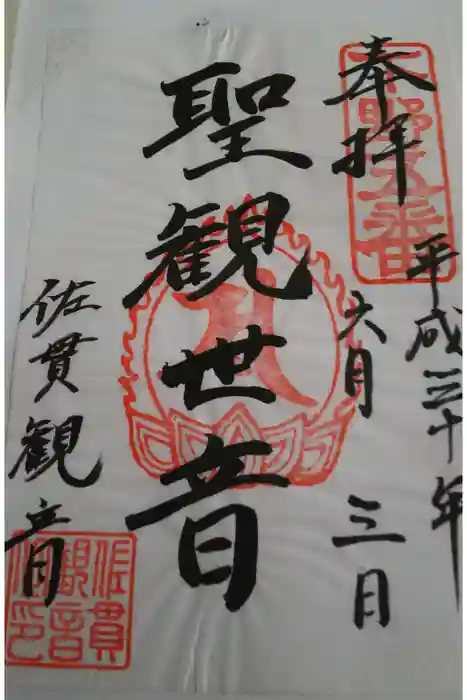 奉拝
平成三十年
六月三日
聖観世音
佐貫観音
佐貫
観音